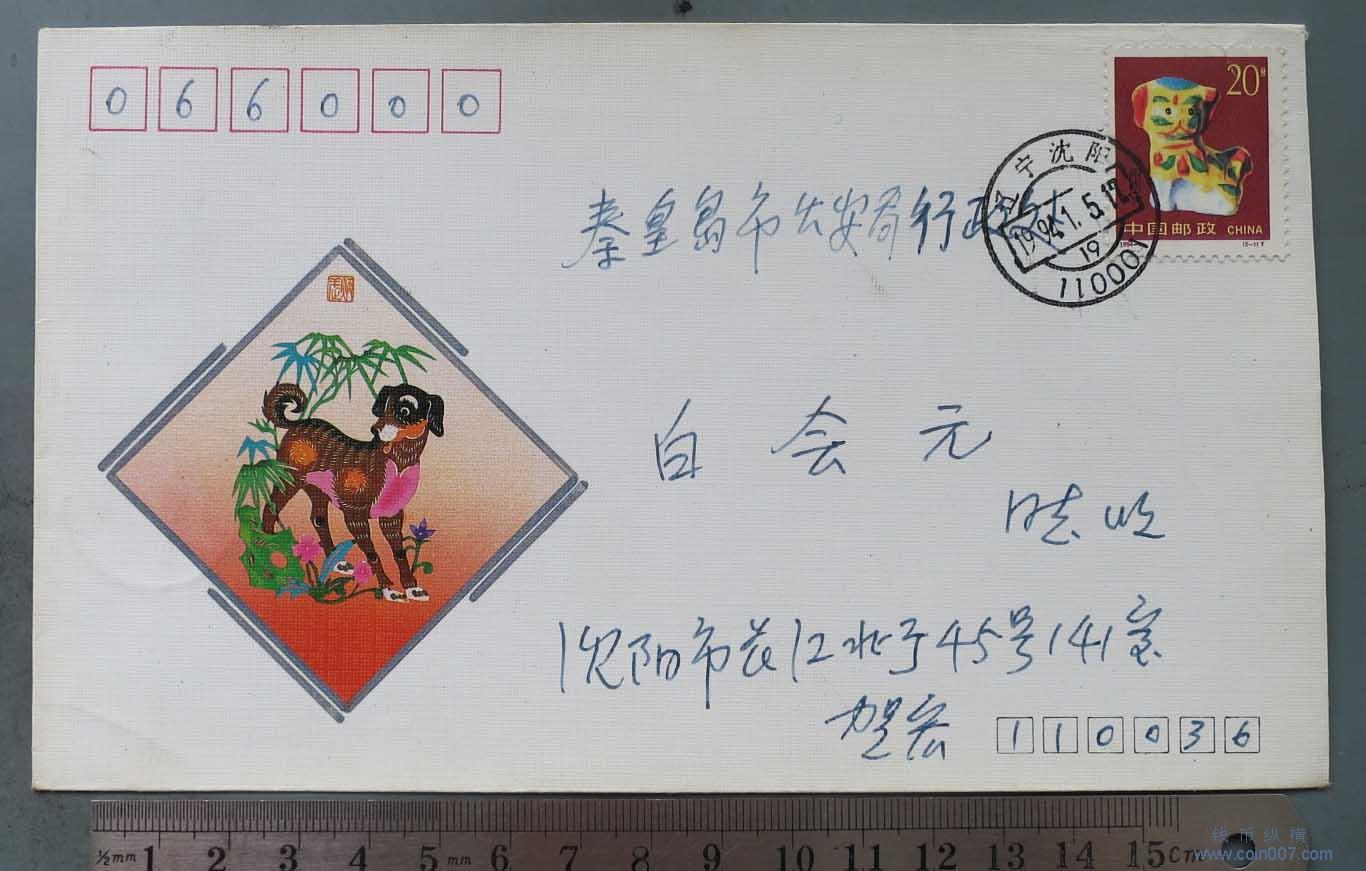 066000
20分
中国邮政 CHINA
1994-1 (2-1)T
辽宁沈阳
1994.1.5.17
19
110001
秦皇岛市公安局行政科
白会元
沈阳市长江北于45号141室
贺宏
110036
½mm 1 2 3 4 5 mm 6 7 8 9 10 11 12 13 14 15 Cm
钱币纵横
www.coin007.com